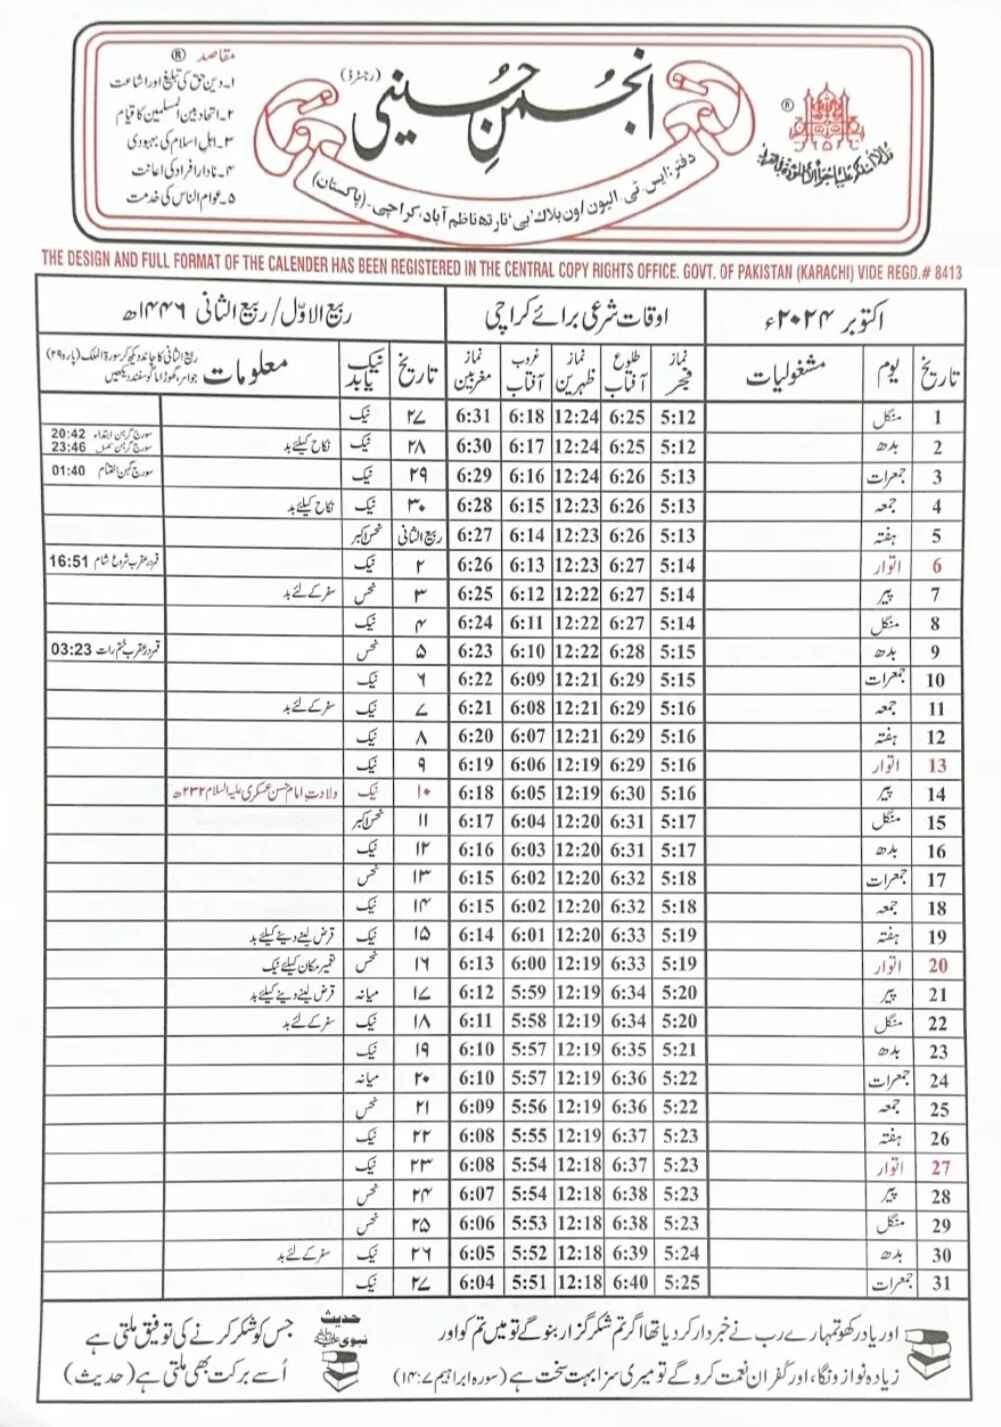 مقاصد ®
۱۔ دین حق کی تبلیغ اور اشاعت
۲۔ اتحاد بین المسلمین کا قیام
۳۔ اہل اسلام کی بہبودی
۴۔ نادار افراد کی اعانت
۵۔ عوام الناس کی خدمت
انجمنِ حُسینی (رجسٹرڈ)
دفتر: ایس۔ٹی۔الیون/ون بلاک 'بی' نارتھ ناظم آباد، کراچی۔ (پاکستان)
®
THE DESIGN AND FULL FORMAT OF THE CALENDER HAS BEEN REGISTERED IN THE CENTRAL COPY RIGHTS OFFICE. GOVT. OF PAKISTAN (KARACHI) VIDE REGD.# 8413
اکتوبر ۲۰۲۴ء اوقات شرعی برائے کراچی ربیع الاوّل/ ربیع الثانی ۱۴۴۶ھ
تاریخ یوم مشغولیات نماز فجر طلوع آفتاب نماز ظہرین غروب آفتاب نماز مغربین تاریخ نیک یا بد معلومات ربیع الثانی کا چاند دیکھ کر سورۃ الملک (پارہ ۲۹) جواہر، گھوڑا یا گوسفند دیکھیں
1 منگل 5:12 6:25 12:24 6:18 6:31 ۲۷ نیک
2 بدھ 5:12 6:25 12:24 6:17 6:30 ۲۸ نیک نکاح کیلئے بد سورج گرہن ابتداء 20:42 سورج گرہن 23:46
3 جمعرات 5:13 6:26 12:24 6:16 6:29 ۲۹ نیک سورج گہن اختتام 01:40
4 جمعہ 5:13 6:26 12:23 6:15 6:28 ۳۰ نیک نکاح کیلئے بد
5 ہفتہ 5:13 6:26 12:23 6:14 6:27 ربیع الثانی نحس اکبر
6 اتوار 5:14 6:27 12:23 6:13 6:26 ۲ نیک قمر در عقرب شروع شام 16:51
7 پیر 5:14 6:27 12:22 6:12 6:25 ۳ نحس سفر کے لئے بد
8 منگل 5:14 6:27 12:22 6:11 6:24 ۴ نیک
9 بدھ 5:15 6:28 12:22 6:10 6:23 ۵ نحس قمر در عقرب ختم رات 03:23
10 جمعرات 5:15 6:29 12:21 6:09 6:22 ۶ نیک
11 جمعہ 5:16 6:29 12:21 6:08 6:21 ۷ نیک سفر کے لئے بد
12 ہفتہ 5:16 6:29 12:21 6:07 6:20 ۸ نیک
13 اتوار 5:16 6:29 12:19 6:06 6:19 ۹ نیک
14 پیر 5:16 6:30 12:19 6:05 6:18 ۱۰ نیک ولادت امام حسن عسکری علیہ السلام ۲۳۲ھ
15 منگل 5:17 6:31 12:20 6:04 6:17 ۱۱ نحس اکبر
16 بدھ 5:17 6:31 12:20 6:03 6:16 ۱۲ نیک
17 جمعرات 5:18 6:32 12:20 6:02 6:15 ۱۳ نحس
18 جمعہ 5:18 6:32 12:20 6:02 6:15 ۱۴ نیک
19 ہفتہ 5:19 6:33 12:20 6:01 6:14 ۱۵ نیک قرض لینے دینے کیلئے بد
20 اتوار 5:19 6:33 12:19 6:00 6:13 ۱۶ نحس تعمیر مکان کیلئے نیک
21 پیر 5:20 6:34 12:19 5:59 6:12 ۱۷ میانہ قرض لینے دینے کیلئے بد
22 منگل 5:20 6:34 12:19 5:58 6:11 ۱۸ نیک سفر کے لئے بد
23 بدھ 5:21 6:35 12:19 5:57 6:10 ۱۹ نیک
24 جمعرات 5:22 6:36 12:19 5:57 6:10 ۲۰ میانہ
25 جمعہ 5:22 6:36 12:19 5:56 6:09 ۲۱ نحس
26 ہفتہ 5:23 6:37 12:19 5:55 6:08 ۲۲ نیک
27 اتوار 5:23 6:37 12:18 5:54 6:08 ۲۳ نیک
28 پیر 5:23 6:38 12:18 5:54 6:07 ۲۴ نحس
29 منگل 5:23 6:38 12:18 5:53 6:06 ۲۵ نحس
30 بدھ 5:24 6:39 12:18 5:52 6:05 ۲۶ نیک سفر کے لئے بد
31 جمعرات 5:25 6:40 12:18 5:51 6:04 ۲۷ نیک
اور یاد رکھو تمہارے رب نے خبردار کر دیا تھا اگر تم شکر گزار بنو گے تو میں تم کو اور
زیادہ نوازونگا، اور کفران نعمت کرو گے تو میری سزا بہت سخت ہے (سورہ ابراہیم ۱۴:۷)
حدیث نبوی ﷺ
جس کو شکر کرنے کی توفیق ملتی ہے
اُسے برکت بھی ملتی ہے (حدیث)